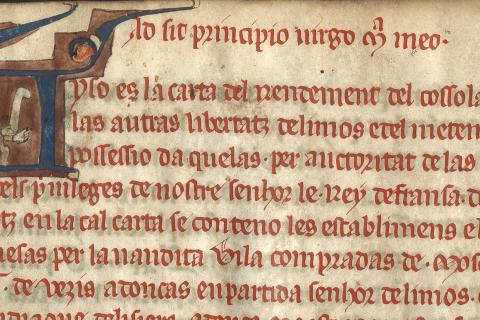 Ad sit principio uirgo m̄ meo·
yso es la carta del rendement del cossola
las autras libertatz delimos e del meten
possessio da quelas · per auctoritat de las
els priuileges de nostre senhor le · Rey defransa · d
tz en la cal carta se conteno les establimens e
esas per la uandita Uila compradas de · 
de Vezis adoncas en partida senhor delimos ·